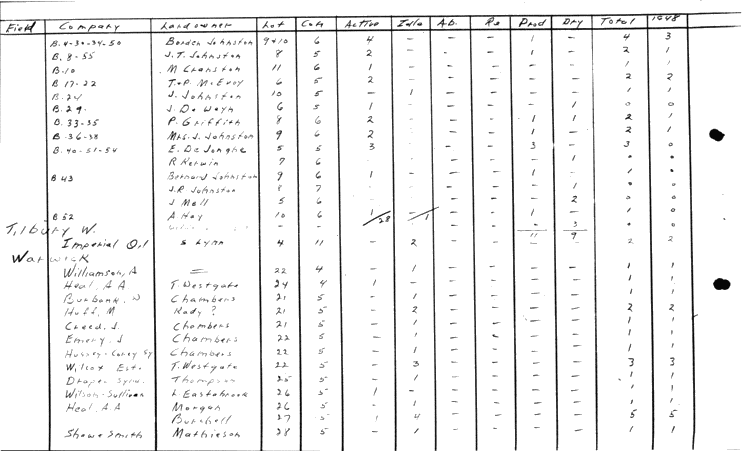 Field Company Landowner Lot Con Active Idle Ab. Re Prod Dry Total 1948
B.4-30-34-50 Borden Johnston 9+10 6 4 - - - 1 - 4 3
B.8-55 J.T. Johnston 8 5 2 - - - 1 - 2 1
B-10 M Cranston 11 6 1 - - - - - 1 1
B 17-22 T+P. McEvoy 6 5 2 - - - - - 2 2
B-24 J. Johnston 10 5 - 1 - - - - 1 1
B.29. J. De 6 5 1 - - - - 1 0 0
B.33-35 P. Griffith 8 6 2 - - - 1 1 2 1
B.36-38 Mrs. J. Johnston 9 6 2 - - - 1 - 2 1
B.40-51-54 E. De Jonghe 5 5 3 - - - 3 - 3 0
R Kerwin 7 6 - - - - - 1
B 43 Bernard Johnston 9 6 1 - - - 1 -
J.R Johnston 8 7 - - - - - 1
J Moll 5 6 - - - - - 2
B 52 A Hay 10 6 1/28 -/1 - - 1 -
- - - - - 3
11 9
Tilbury W.
Imperial Oil S Lynn 4 11 - 2 - - - - 2 2
Warwick
Williamson, A = 22 4 - 1 - - - - 1 1
Heal. A A. T. Westgate 24 4 1 - - - - - 1 1
Burbank. Chambers 21 5 - 1 - - - - 1 1
Huff, M Rady? 21 5 - 2 - - - - 2 2
Creed. J. Chambers 21 5 - 1 - - - - 1 1
Emery. J Chambers 22 5 - 1 - - - - 1 1
Chambers 22 5 - 1 - - - - 1 1
Wilcox Est. T. Westgate 22 5 - 3 - - - - 3 3
Draper Synd. Thompson 25 5 - 1 - - - - 1 1
Wilson-Sullivan L Eastabrook 26 5 1 - - - - - 1 1
Heal. A.A Morgan 26 5 - 1 - - - - 1 1
Burchell 27 5 1 4 - - - - 5 5
Shawe Smith Mathieson 28 5 - 1 - - - - 1 1